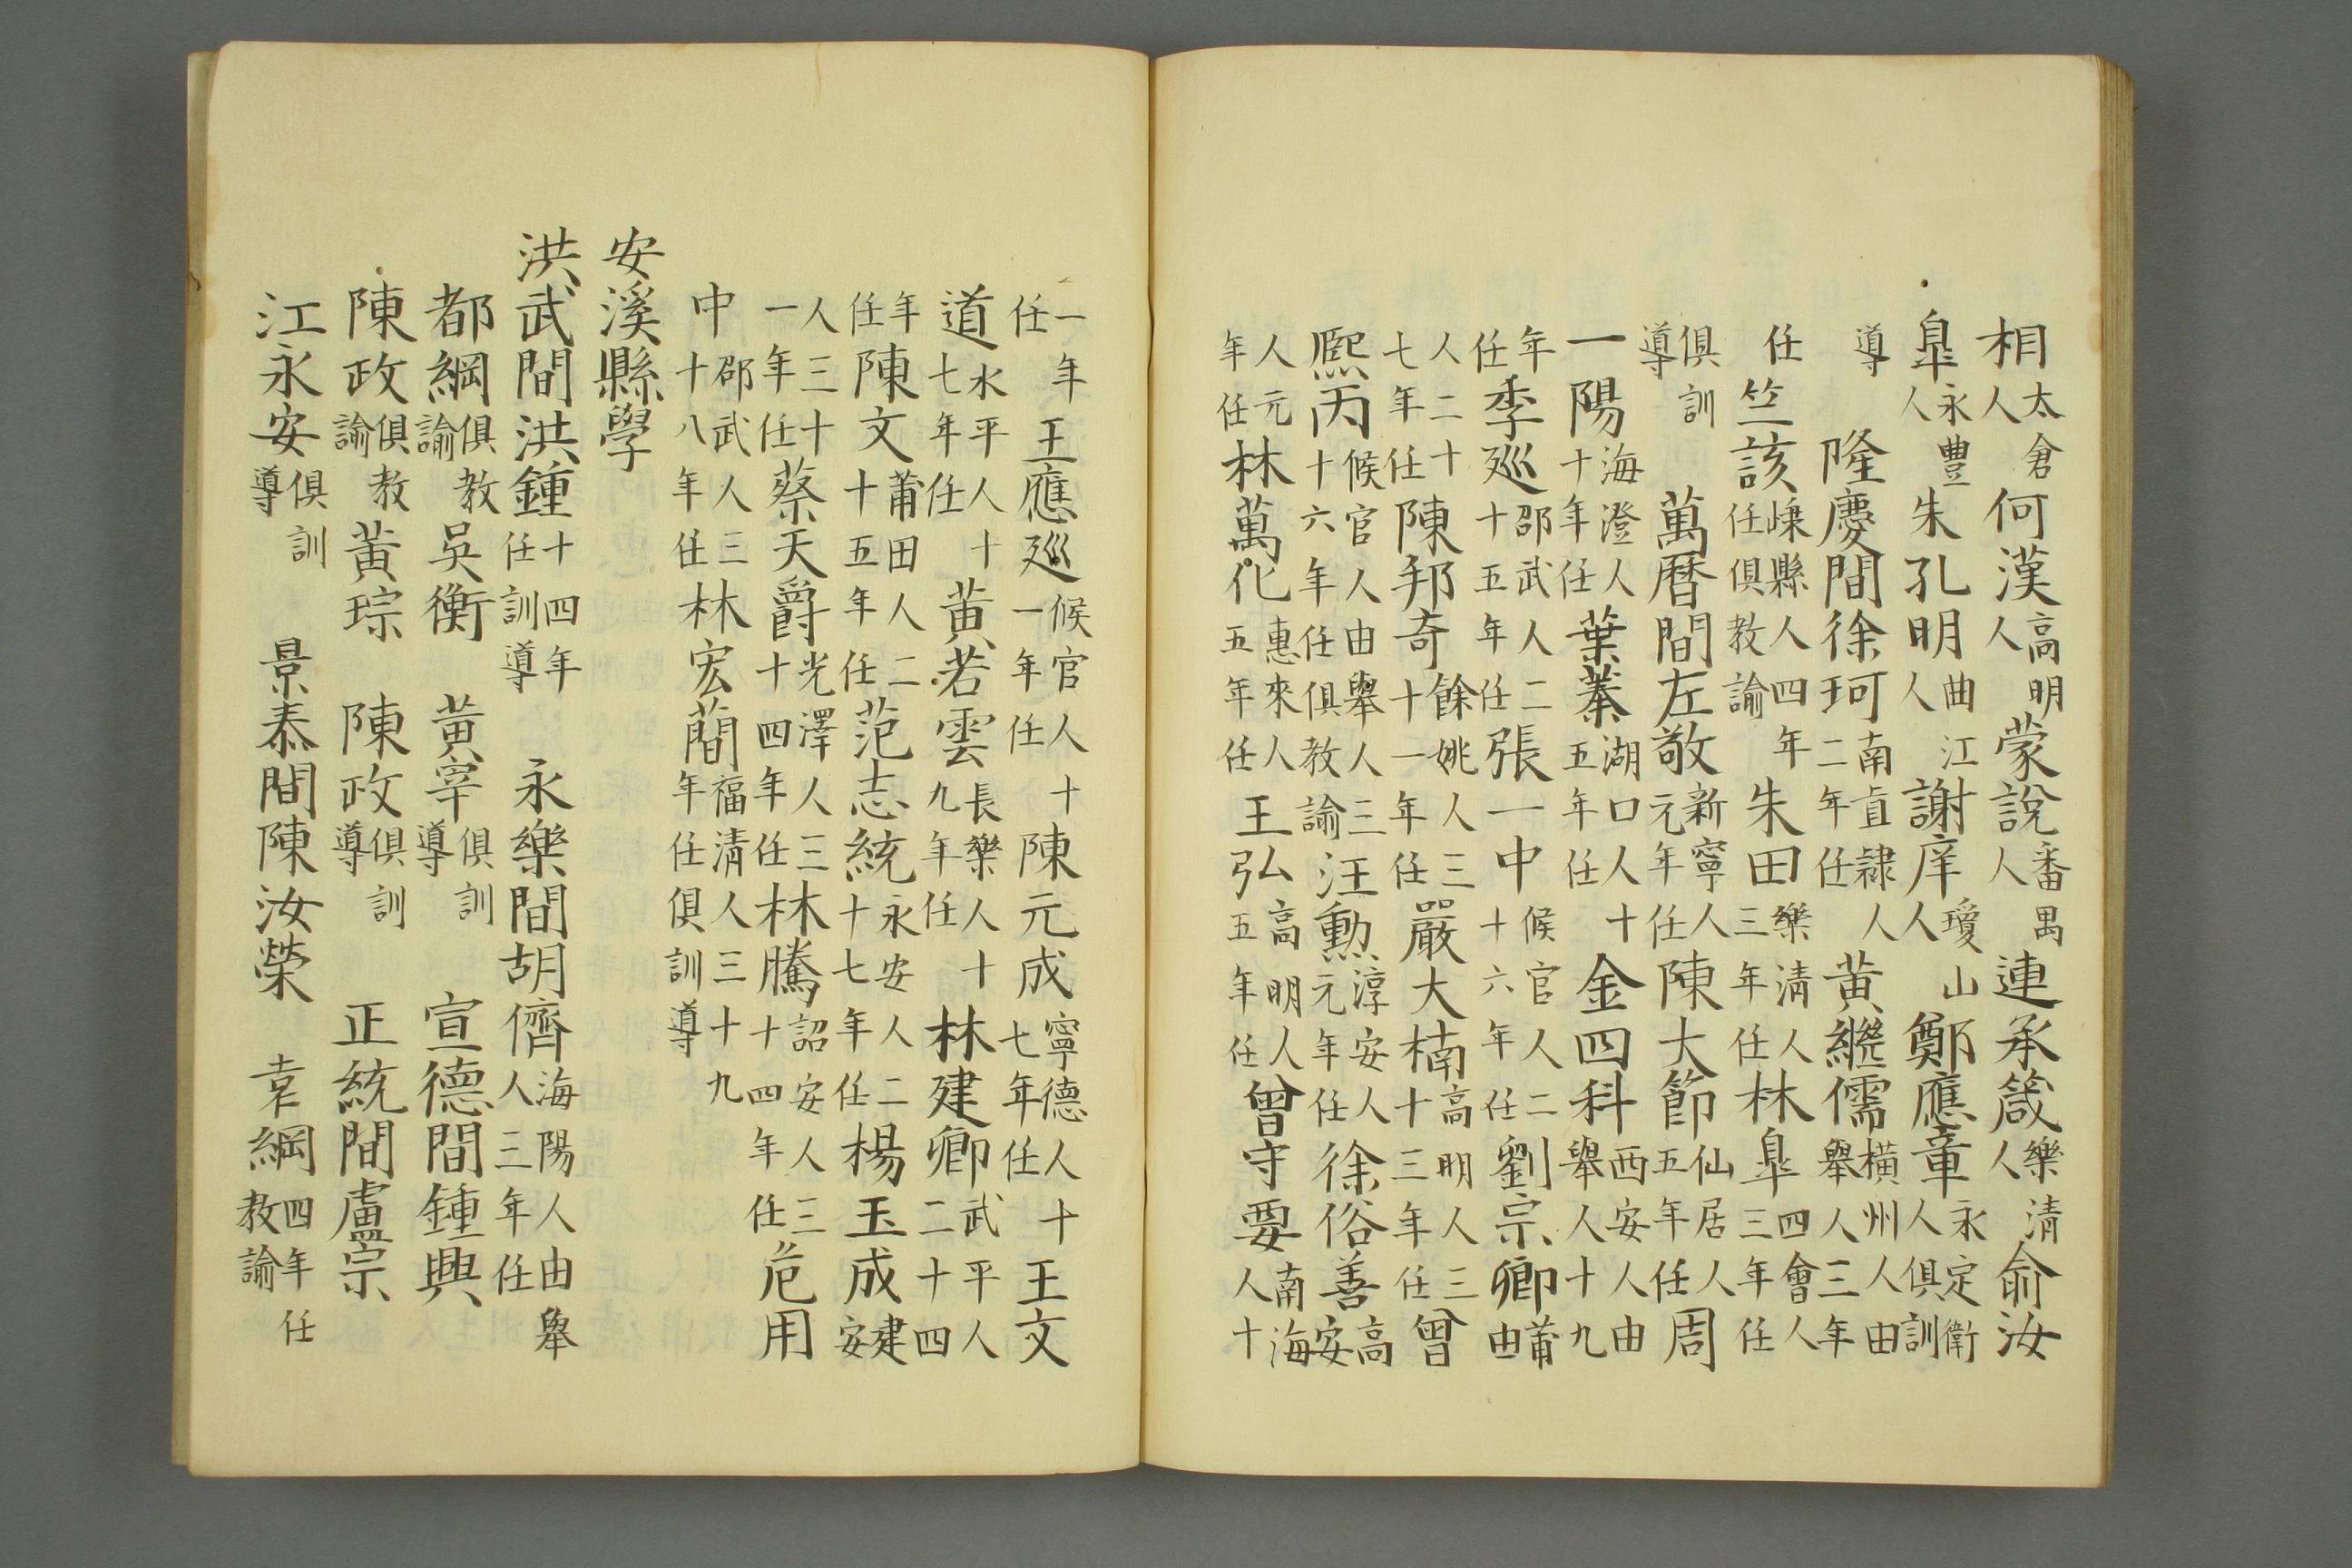 相太倉人何漢高明人蒙說番禺人連承箴樂清人俞汝
皐永豐人朱孔明曲江人謝庠瓊山人鄭應章永定衛人俱訓
導 隆慶間徐珂南直隸人二年任黃繼儒橫州人由舉人三年
任竺該嵊縣人四年任俱教諭朱田樂清人三年任林皐四會人三年任
俱訓導 萬曆間左敬新寧人元年任陳大節仙居人五年任周
一陽海澄人十年任葉蓁湖口人十五年任金四科西安人由舉人十九
年任季巡邵武人二十五年任張一中候官人二十六年任劉宗卿莆由
人二十七年任陳邦奇餘姚人三十一年任嚴大楠高明人三十三年任曾
熙丙候官人由舉人三十六年任俱教諭汪勲淳安人元年任徐俗善高安
人元年任林萬化惠來人五年任王弘高明人五年任曾守要南海人十
一年任王應巡候官人十一年任陳元成寧德人十七年任王文
道水平人十七年任黃若雲長樂人十九年任林建卿武平人二十四
年任陳文莆田人二十五年任范志統永安人二十七年任楊玉成建安
人三十一年任蔡天爵光澤人三十四年任林騰詔安人三十四年任危用
中邵武人三十八年任林宏蕳福清人三十九年任俱訓導
安溪縣學
洪武間洪鍾十四年任訓導 永樂間胡儕海陽人由舉人三年任
都綱俱教諭吳衡 黃宰俱訓導 宣德間鍾興
陳政俱教諭黃琮 陳政俱訓導 正統間盧宗
江永安俱訓導 景泰間陳汝榮 綱四年任教諭